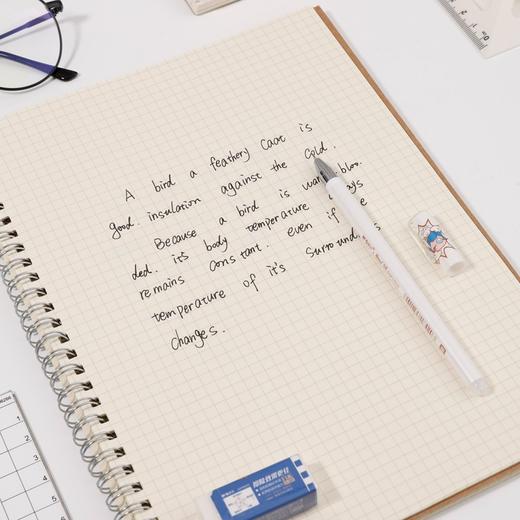 A bird a feathery Coat is
good. insulation against the Cold.
Because a bird is warm bloo.
ded. its body temperature
remains constant. even if
temperature of it's Surround
changes.
1
2
3
4
5